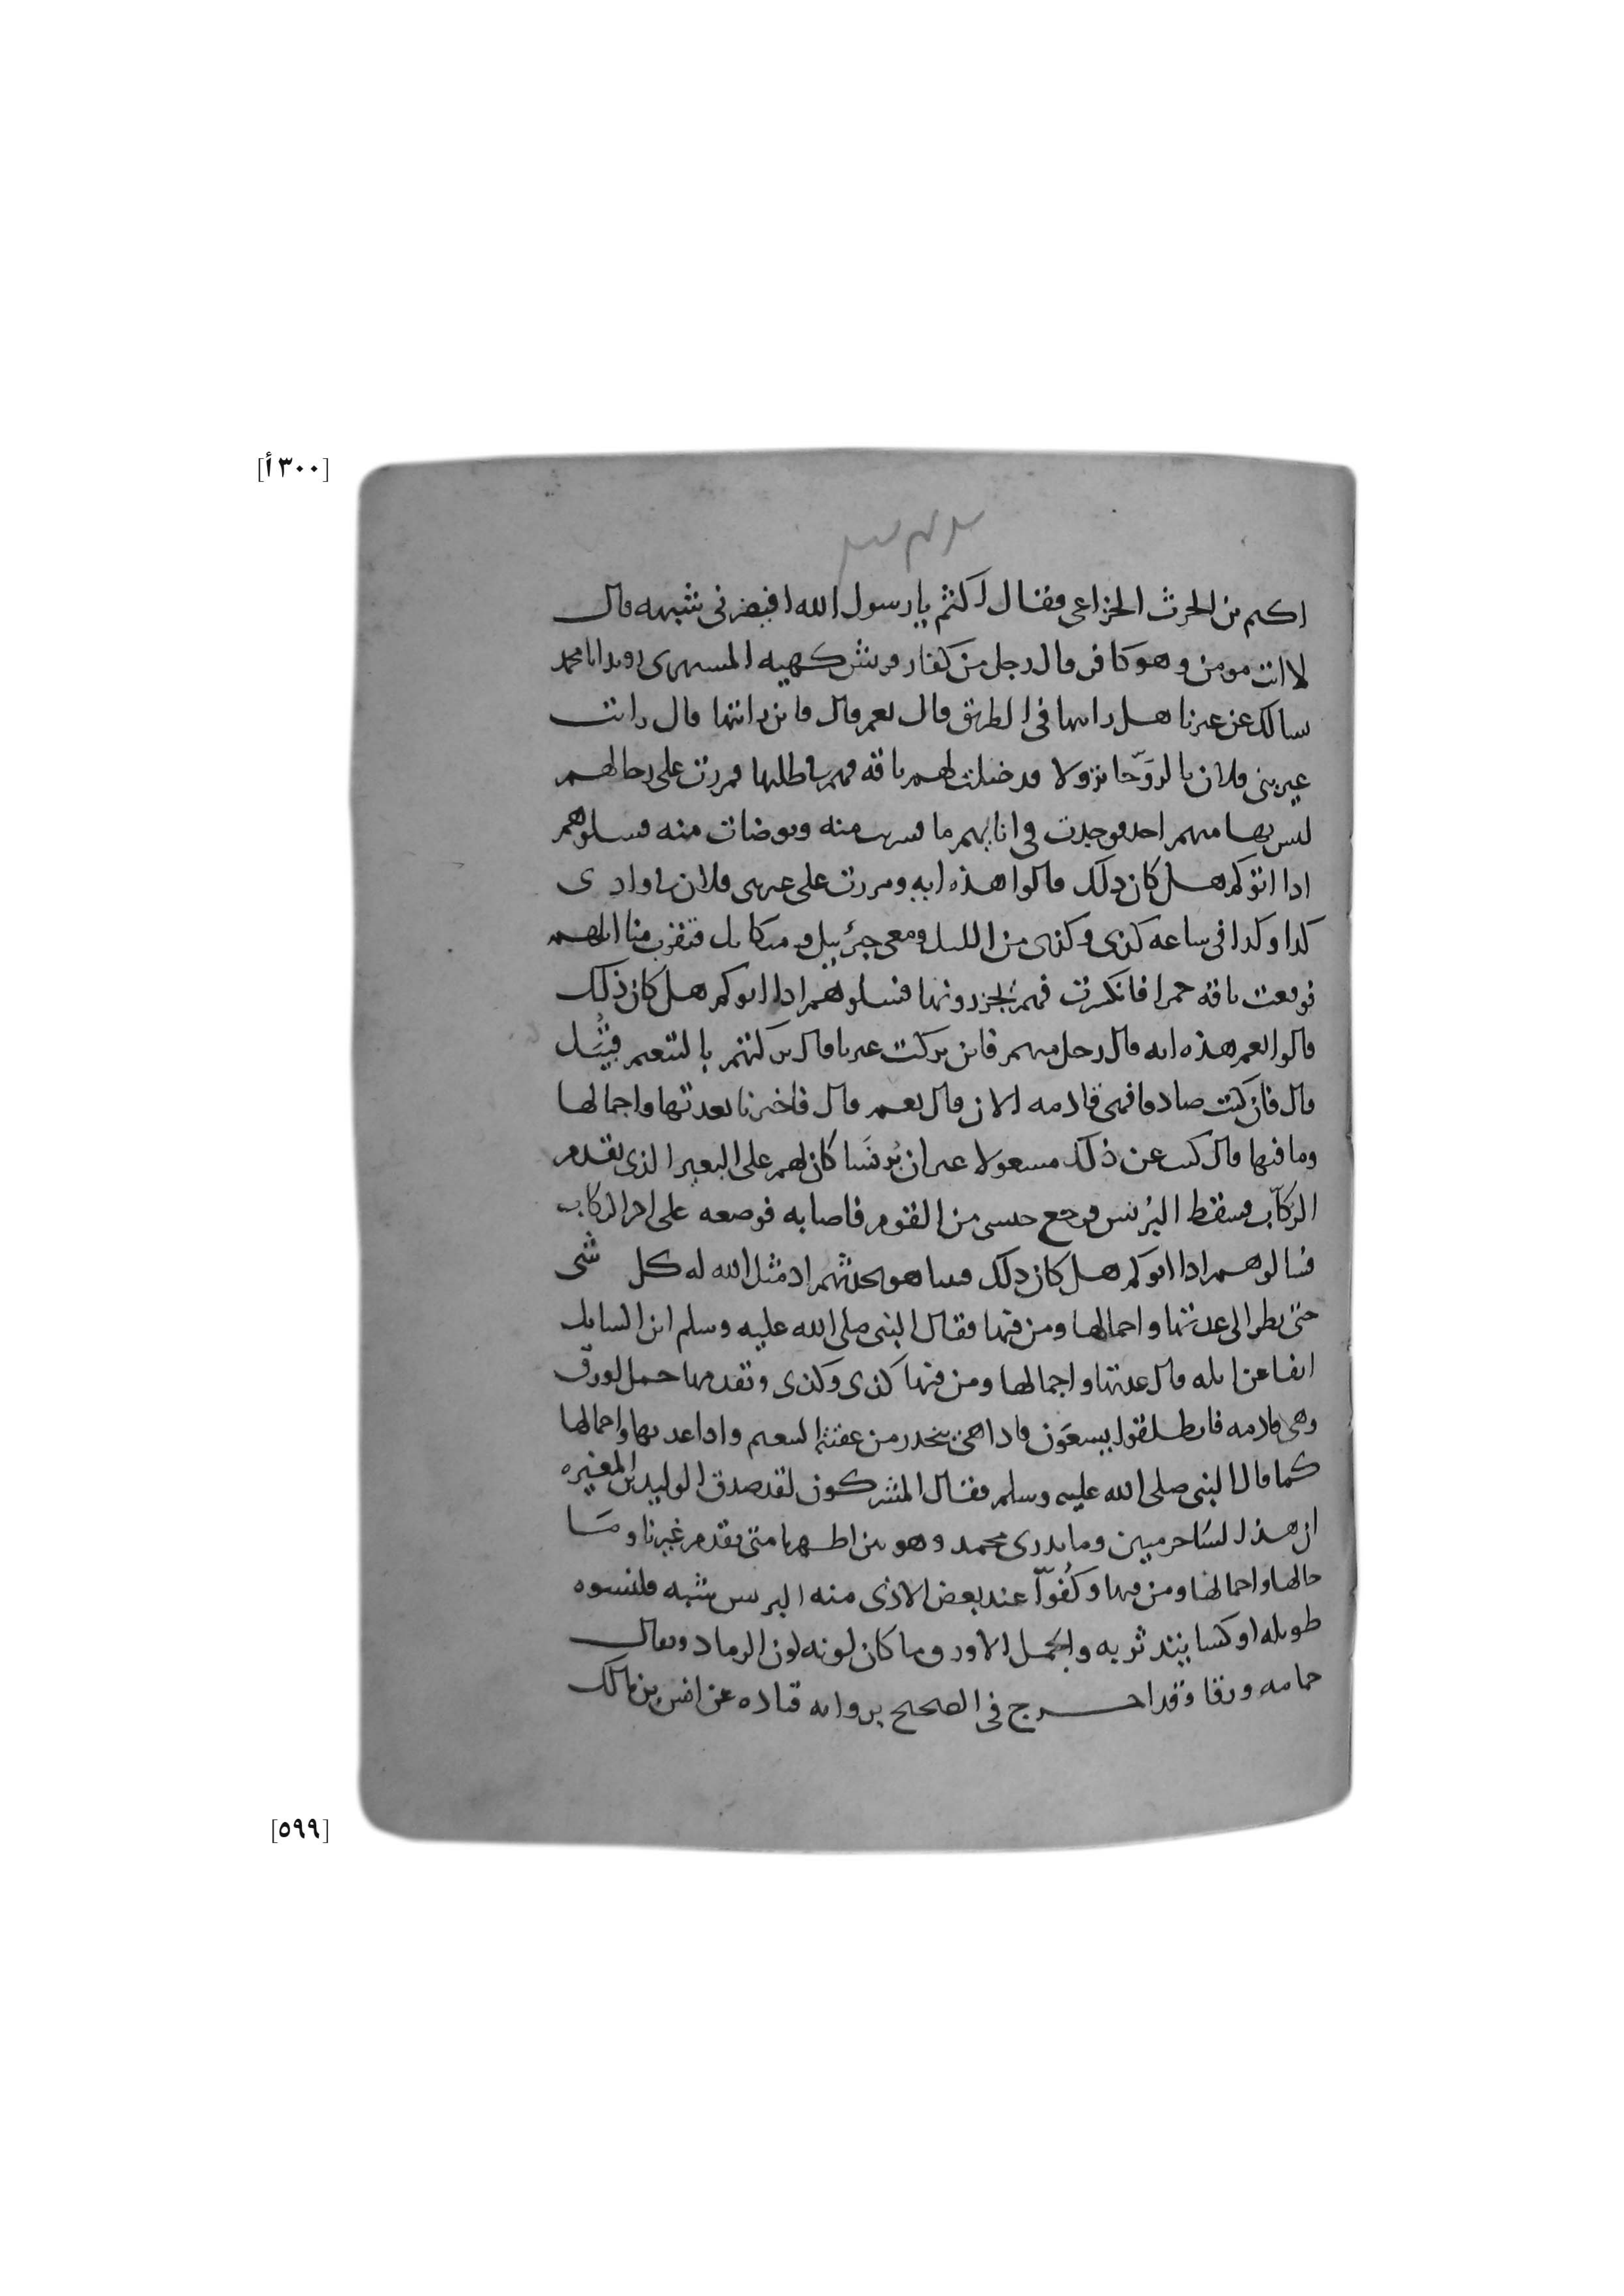 [٣٠٠أ]
اكثم بن الحرث الخزاعي فقال اكثم يا رسول الله افيضرني شبهه قال
لا انت مومن وهو كافر قال رجل من كفار قريش كهيه المستهزى رويدا يا محمد
سالك عن عيرنا هل رايتها في الطريق قال نعم قال فاين رايتها قال رايت
عير بني فلان بالروّحا نزولا قد ضلت لهم ناقة فهم في طلبها فمررت على رحالهم
ليس بها منهم احد فوجدت في انا لهم ما فشربت منه وتوضات منه فسلوهم
اذا اتوكم هل كان ذلك قالوا هذه ايه ومررت على عير بني فلان بوادي
كذا وكذا في ساعه كذى وكذى من الليل ومعي جبرئيل وميكائل فتفرت منا ابلهم
فوقعت ناقه حمرا فانكسرت فهم يجزرونها فسلوهم اذا اتوكم هل كان ذلك
قالوا نعم هذه ايه قال رجل منهم فاين تركت عيرنا قال تركتهم بالتنعيم قبيل
قال فان كنت صادقا فهي قادمه الان قال نعم قال فاخبرنا بعدتها واحمالها
وما فيها قال كنت عن ذلك مشغولا غير ان بُرنسا كان لهم على البعير الذي يقدم
الركاب فسقط البرنس فرجع حبشي من القوم فاصابه فوضعه على اخر الركاب
فسالوهم اذا اتوكم هل كان ذلك فبينا هو يحدثهم اذ مثل الله له كل شي
حتى نظر الى عدتها واحمالها ومن فيها فقال النبي صلى الله عليه وسلم اين السايل
انفا عن ابله قال عدتها واحمالها ومن فيها كذى وكذى وتقدمها جمل اورق
وهي قادمه فانطلقوا يسعَون فاذا هي تنحدر من عقبة التنعيم واذا عدتها واحمالها
كما قال النبي صلى الله عليه وسلم فقال المشركون لقد صدق الوليد بن المغيره
ان هذا لساحر مبين وما يدري محمد وهو بين اظهرنا متى تقدم عيرنا وما
حالها واحمالها ومن فيها وكُفوّا عند بعض الاذى منه البرنس شبه قلنسوه
طويله او كسا يتدثر به والجمل الاورق ما كان لونه لون الرماد ويقال
حمامه ورقا وقد اخرج في الصحيح بروايه قتاده عن انس بن مالك
[٥٩٩]